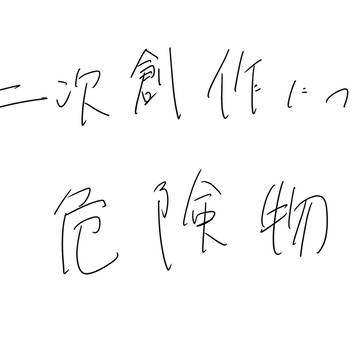 二次創作につ
危険物